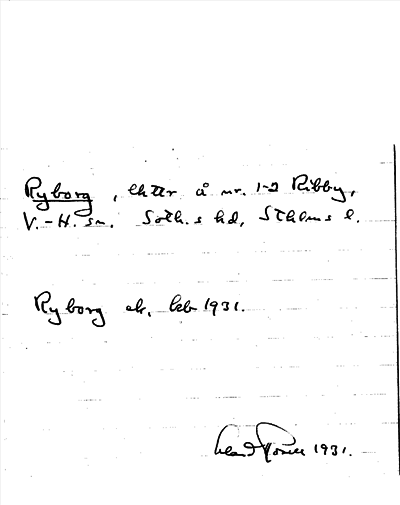 Ryborg, lhttr å nr. 1-2 Ribby,
V.-H. sn. Soth.s hd, Sthlms l.
Ryborg ek. kb 1931.
1931.